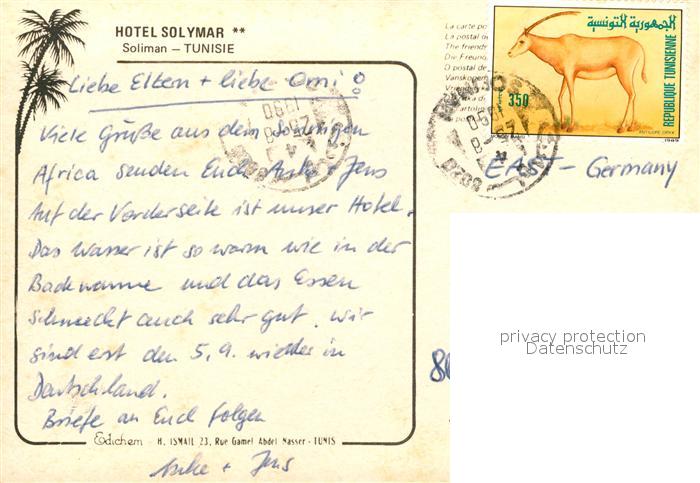 HOTEL SOLYMAR **
Soliman — TUNISIE
Liebe Eltern + liebe Omi !
Viele Grüße aus dem sonnigen
Africa senden Euch Anke + Jens
Auf der Vorderseite ist unser Hotel.
Das Wasser ist so warm wie in der
Badewanne und das Essen
schmeckt auch sehr gut. Wir
sind erst den 5.9. wieder in
Deutschland.
Briefe an Euch folgen
Anke + Jens
Edichem - H. ISMAIL 23, Rue Gamel Abdel Nasser - TUNIS
La carte po
La postal de
The friendly
Die Freund
O postal de
الجمهورية التونسية
REPUBLIQUE TUNISIENNE
350
ANTILOPE ORYX
1989
1990
EAST - Germany
privacy protection
Datenschutz